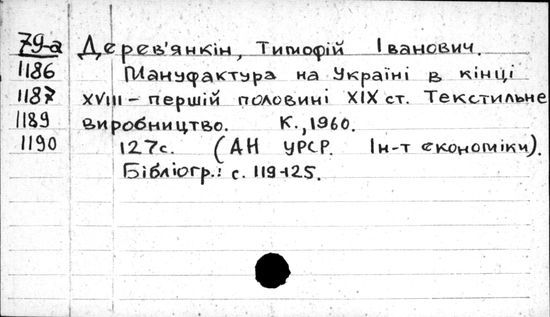 79-а Дерев'янкін, Тимофій Іванович.
1186 Мануфактура на Україні в кінці
1187 XVIII – першій половині XIX ст. Текстильне
1189 виробництво. К., 1960.
1190 127с. (АН УРСР. Ін-т економіки).
Бібліогр.: с. 119-125.